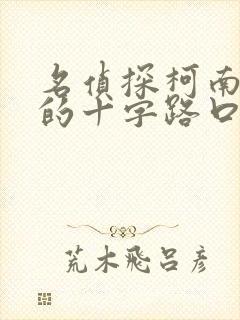 名侦探柯南
的十字路口
荒木飛呂彦